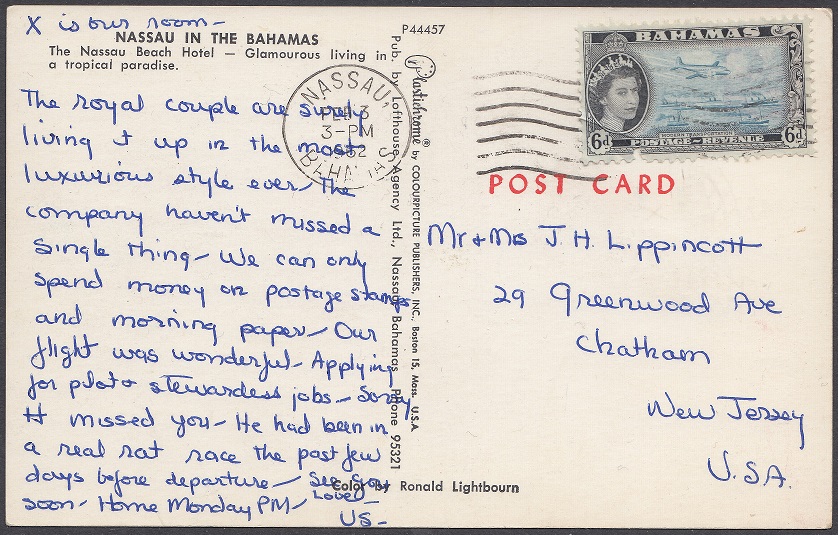 X is our room-
NASSAU IN THE BAHAMAS
The Nassau Beach Hotel — Glamourous living in
a tropical paradise.
P44457
The royal couple are surely
living it up in the most
luxurious style ever- The
company haven't missed a
single thing- We can only
spend money on postage stamps
and morning paper- Our
flight was wonderful- Applying
for pilot + stewardess jobs- Sorry
H missed you- He had been in
a real rat race the past few
days before departure- See you
soon- Home Monday PM- Love-
US-
Color by Ronald Lightbourn
Pub. by Lofthouse Agency Ltd., Nassau, Bahamas Phone 95321
Plastichrome® by COLOURPICTURE PUBLISHERS, INC., Boston 15, Mass. U.S.A.
NASSAU,
3-PM
BAHAMAS
BAHAMAS
6d
MODERN TRANSPORTATION
POSTAGE-REVENUE
6d
POST CARD
Mr + Mrs J. H. Lippincott
29 Greenwood Ave
Chatham
New Jersey
U.S.A.